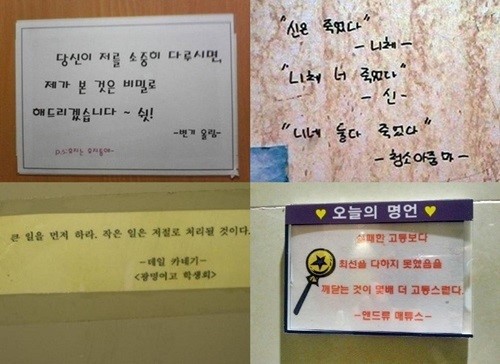 당신이 저를 소중히 다루시면,
제가 본 것은 비밀로
해드리겠습니다 ~ 쉿!
-변기 올림-
"신은 죽었다"
- 니체 -
"니체 너 죽었다"
- 신 -
"니네 둘다 죽었다"
- 청소아줌마 -
큰 일을 먼저 하라. 작은 일은 저절로 처리될 것이다.
-데일 카네기-
<광명여고 학생회>
오늘의 명언
실패한 고통보다
최선을 다하지 못했음을
깨닫는 것이 몇배 더 고통스럽다.
-앤드류 매튜스-